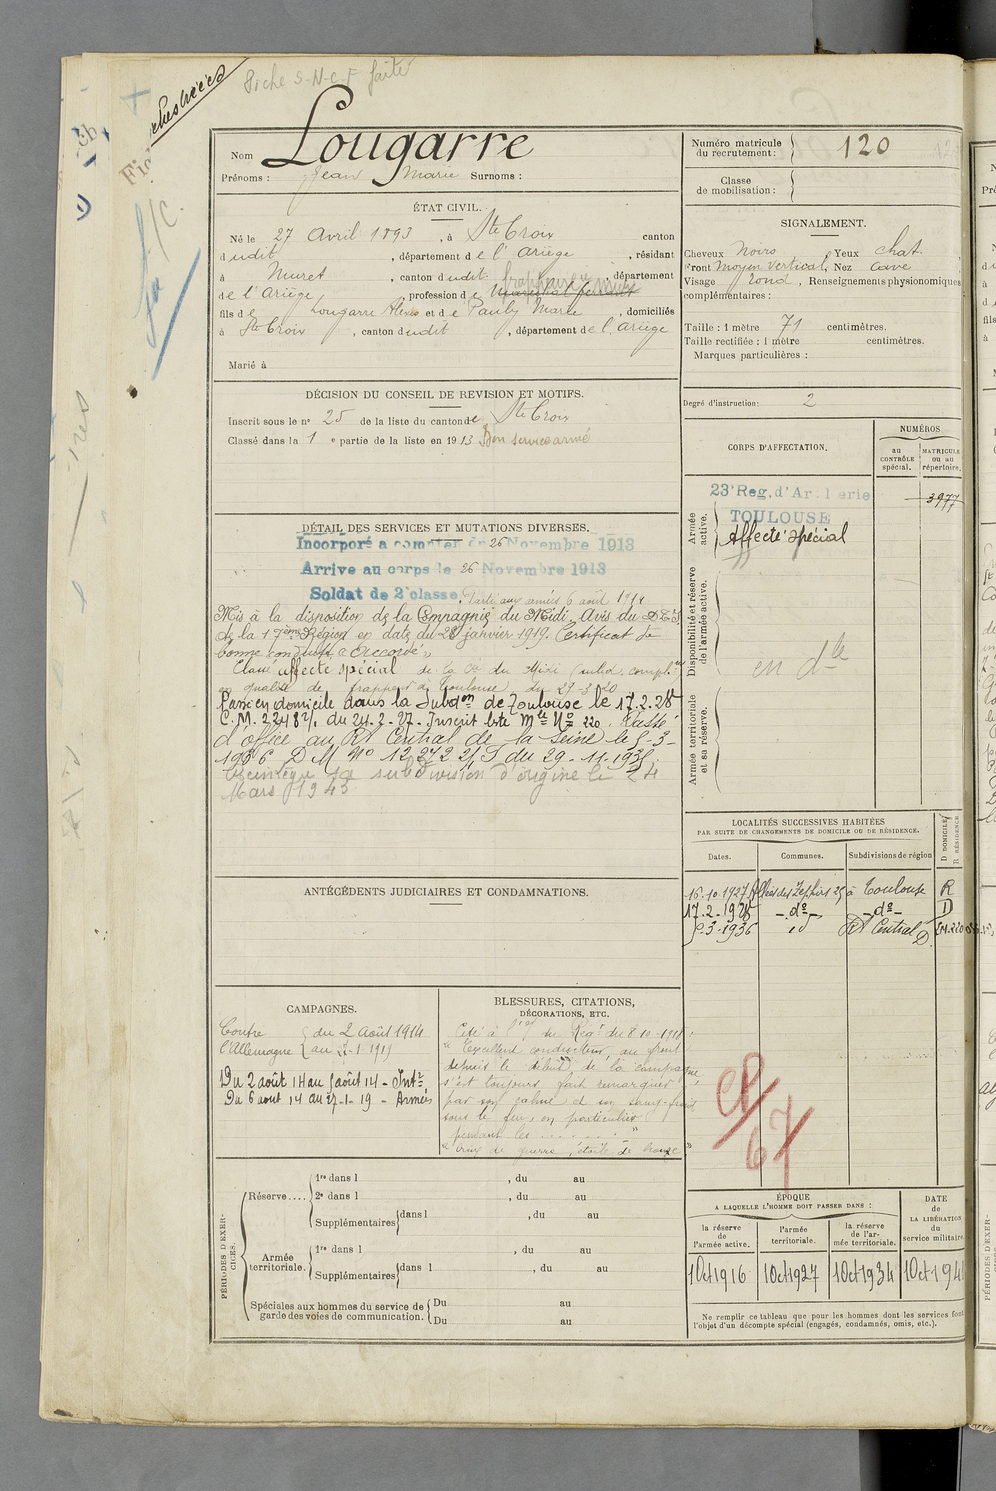 Fiche S-N-C-F faite
Nom Lougarre
Prénoms : Jean Marie Surnoms :
Numéro matricule du recrutement : 120
Classe de mobilisation :
ÉTAT CIVIL.
Né le 27 Avril 1893, à Ste Croix canton
dudit, département de l'Ariège, résidant
à Muret, canton dudit, département
de l'Ariège, profession de maréchal ferrant
fils de Lougarre Alexis et de Pauly Marie, domiciliés
à Ste Croix, canton dudit, département de l'Ariège
Marié à
SIGNALEMENT.
Cheveux Noirs Yeux chat.
Front moyen vertical, Nez cave
Visage rond, Renseignements physionomiques
complémentaires :
Taille : 1 mètre 71 centimètres.
Taille rectifiée : 1 mètre centimètres.
Marques particulières :
Degré d'instruction : 2
DÉCISION DU CONSEIL DE REVISION ET MOTIFS.
Inscrit sous le n° 25 de la liste du canton de Ste Croix
Classé dans la 1e partie de la liste en 1913 Bon service armé
CORPS D'AFFECTATION.
NUMÉROS
au CONTRÔLE spécial.
MATRICULE ou au répertoire.
Armée active.
23e Reg. d'Artillerie
TOULOUSE
3977
Affecté spécial
Disponibilité et réserve de l'armée active.
en dle
Armée territoriale et sa réserve.
DÉTAIL DES SERVICES ET MUTATIONS DIVERSES.
Incorporé a compter du 26 Novembre 1913
Arrive au corps le 26 Novembre 1913
Soldat de 2e classe. Parti aux armées 6 août 1914
Mis à la disposition de la Compagnie du Midi. Avis du D.E.S
de la 17ème Région en date du 28 janvier 1919. Certificat de
bonne conduite "Accordé"
Classé affecté spécial de la Cie du Midi subd. compl.re
en qualité de frappeur à Toulouse du 21-3-20
Passé en domicile dans la Subdon de Toulouse le 17.2.28
C.M. 2248 2/1 du 24-2-27. Inscrit liste mle No 220. Classé
d'office au Rt Central de la Seine le 5-3-
1936 D M No 12,272 2/S du 29-11-1935.
Réintègre sa subdivision d'origine le 24
Mars 1945
LOCALITÉS SUCCESSIVES HABITÉES
PAR SUITE DE CHANGEMENTS DE DOMICILE OU DE RÉSIDENCE.
Dates. Communes. Subdivisions de région D DOMICILE R RÉSIDENCE
16.10.1927 Toulouse R
17.2-1928 -do- -do- D
5-3-1936 id Rt Central D
ANTÉCÉDENTS JUDICIAIRES ET CONDAMNATIONS.
CAMPAGNES.
Contre l'Allemagne
du 2 août 1914
au 27-1-1919
Du 2 août 14 au 5 août 14 - Intre
Du 6 août 14 au 27-1-19 - Armées
BLESSURES, CITATIONS,
DÉCORATIONS, ETC.
Cité à l'or du Régt du 8-10-1918 :
"Excellent conducteur, au front
depuis le début de la campagne,
s'est toujours fait remarquer
par son calme et son sang-froid
sous le feu, en particulier
pendant les ........."
"Croix de guerre, étoile de bronze"
CP/67
PÉRIODES D'EXERCICES.
Réserve....
1re dans l , du au
2e dans l , du au
Supplémentaires dans l , du au
Armée territoriale.
1re dans l , du au
Supplémentaires dans l , du au
Spéciales aux hommes du service de garde des voies de communication.
Du au
Du au
ÉPOQUE
A LAQUELLE L'HOMME DOIT PASSER DANS :
la réserve de l'armée active.
l'armée territoriale.
la réserve de l'armée territoriale.
DATE de LA LIBÉRATION du service militaire.
1 Oct 1916 1 Oct 1927 1 Oct 1934 1 Oct 194
Ne remplir ce tableau que pour les hommes dont les services font
l'objet d'un décompte spécial (engagés, condamnés, omis, etc.).